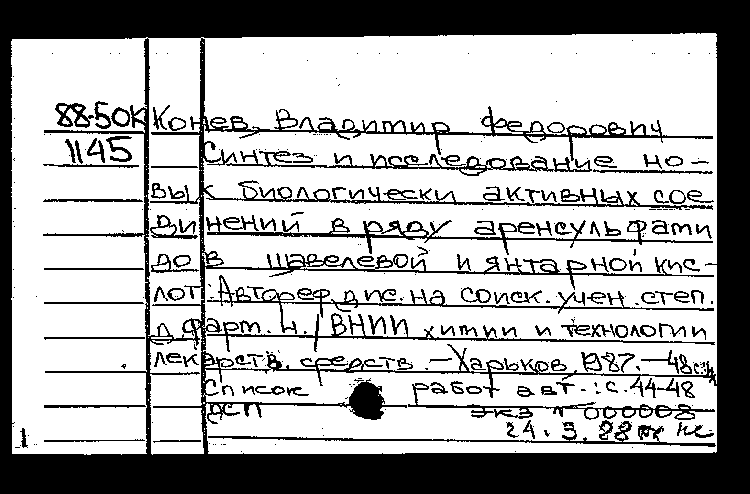 88-50К Конев, Владимир Федорович
1145 Синтез и исследование но-
вых биологически активных сое
динений в ряду аренсульфами
дов щавелевой и янтарной кис-
лот: Автореф. дис. на соиск. учен. степ.
д. фарм. н. / ВНИИ химии и технологии
лекарств. средств. – Харьков, 1987. – 48 с.
Список работ авт.: с. 44-48
ДСП экз № 000008
24. 3. 88
1